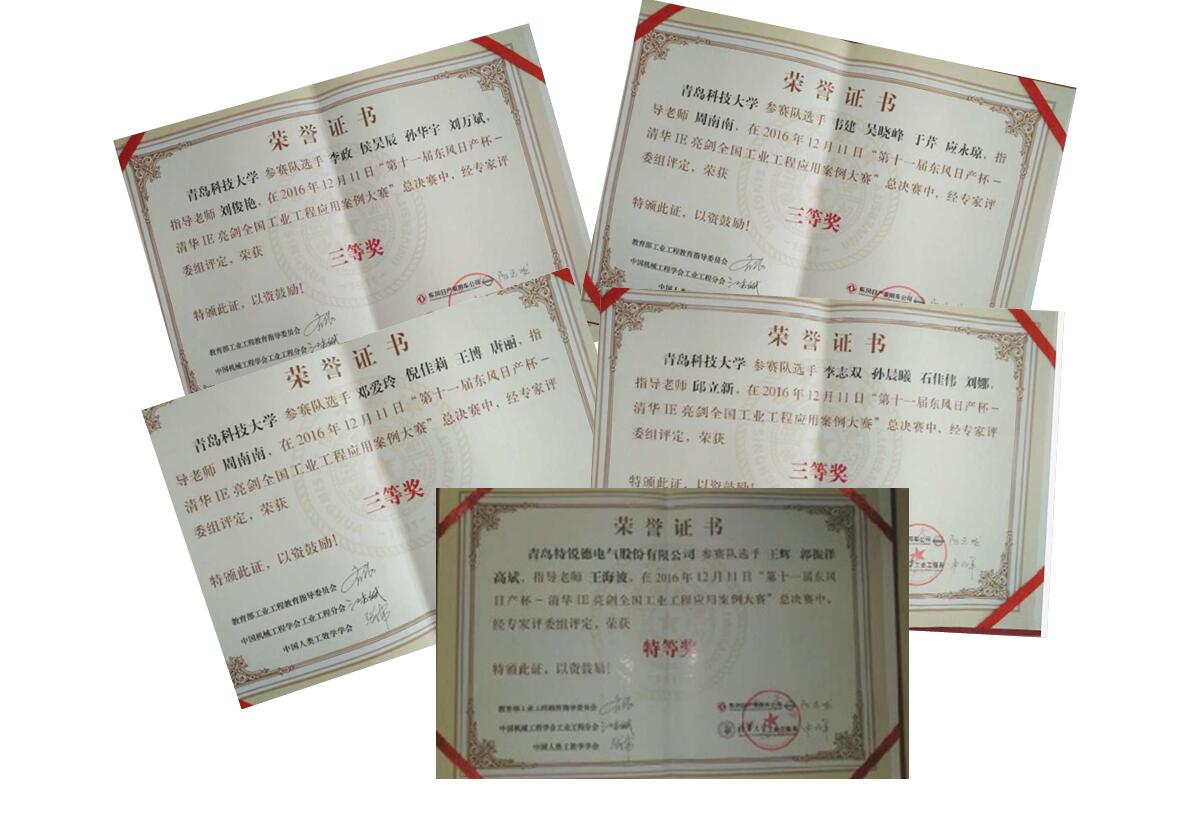 荣誉证书
青岛科技大学 参赛队选手 李政 侯昊辰 孙华宇 刘万斌，
指导老师 刘俊艳，在2016年12月11日“第十一届东风日产杯－
清华IE亮剑全国工业工程应用案例大赛”总决赛中，经专家评
委组评定，荣获
三等奖
特颁此证，以资鼓励！
教育部工业工程教育指导委员会
中国机械工程学会工业工程分会
荣誉证书
青岛科技大学 参赛队选手 韦建 吴晓峰 于芹 应永琼，指
导老师 周南南，在2016年12月11日“第十一届东风日产杯－
清华IE亮剑全国工业工程应用案例大赛”总决赛中，经专家评
委组评定，荣获
三等奖
特颁此证，以资鼓励！
教育部工业工程教育指导委员会
中国机械工程学会工业工程分会
中国人
荣誉证书
青岛科技大学 参赛队选手 邓爱玲 倪佳莉 王博 唐丽，指
导老师 周南南，在2016年12月11日“第十一届东风日产杯－
清华IE亮剑全国工业工程应用案例大赛”总决赛中，经专家评
委组评定，荣获
三等奖
特颁此证，以资鼓励！
教育部工业工程教育指导委员会
中国机械工程学会工业工程分会
中国人类工效学学会
荣誉证书
青岛科技大学 参赛队选手 李志双 孙晨曦 石佳伟 刘娜，
指导老师 邱立新，在2016年12月11日“第十一届东风日产杯－
清华IE亮剑全国工业工程应用案例大赛”总决赛中，经专家评
委组评定，荣获
三等奖
特颁此证，以资鼓励！
荣誉证书
青岛特锐德电气股份有限公司 参赛队选手 王辉 郭振洋
高斌，指导老师 王海波，在2016年12月11日“第十一届东风
日产杯－清华IE亮剑全国工业工程应用案例大赛”总决赛中，
经专家评委组评定，荣获
特等奖
特颁此证，以资鼓励！
教育部工业工程教育指导委员会
中国机械工程学会工业工程分会
中国人类工效学学会